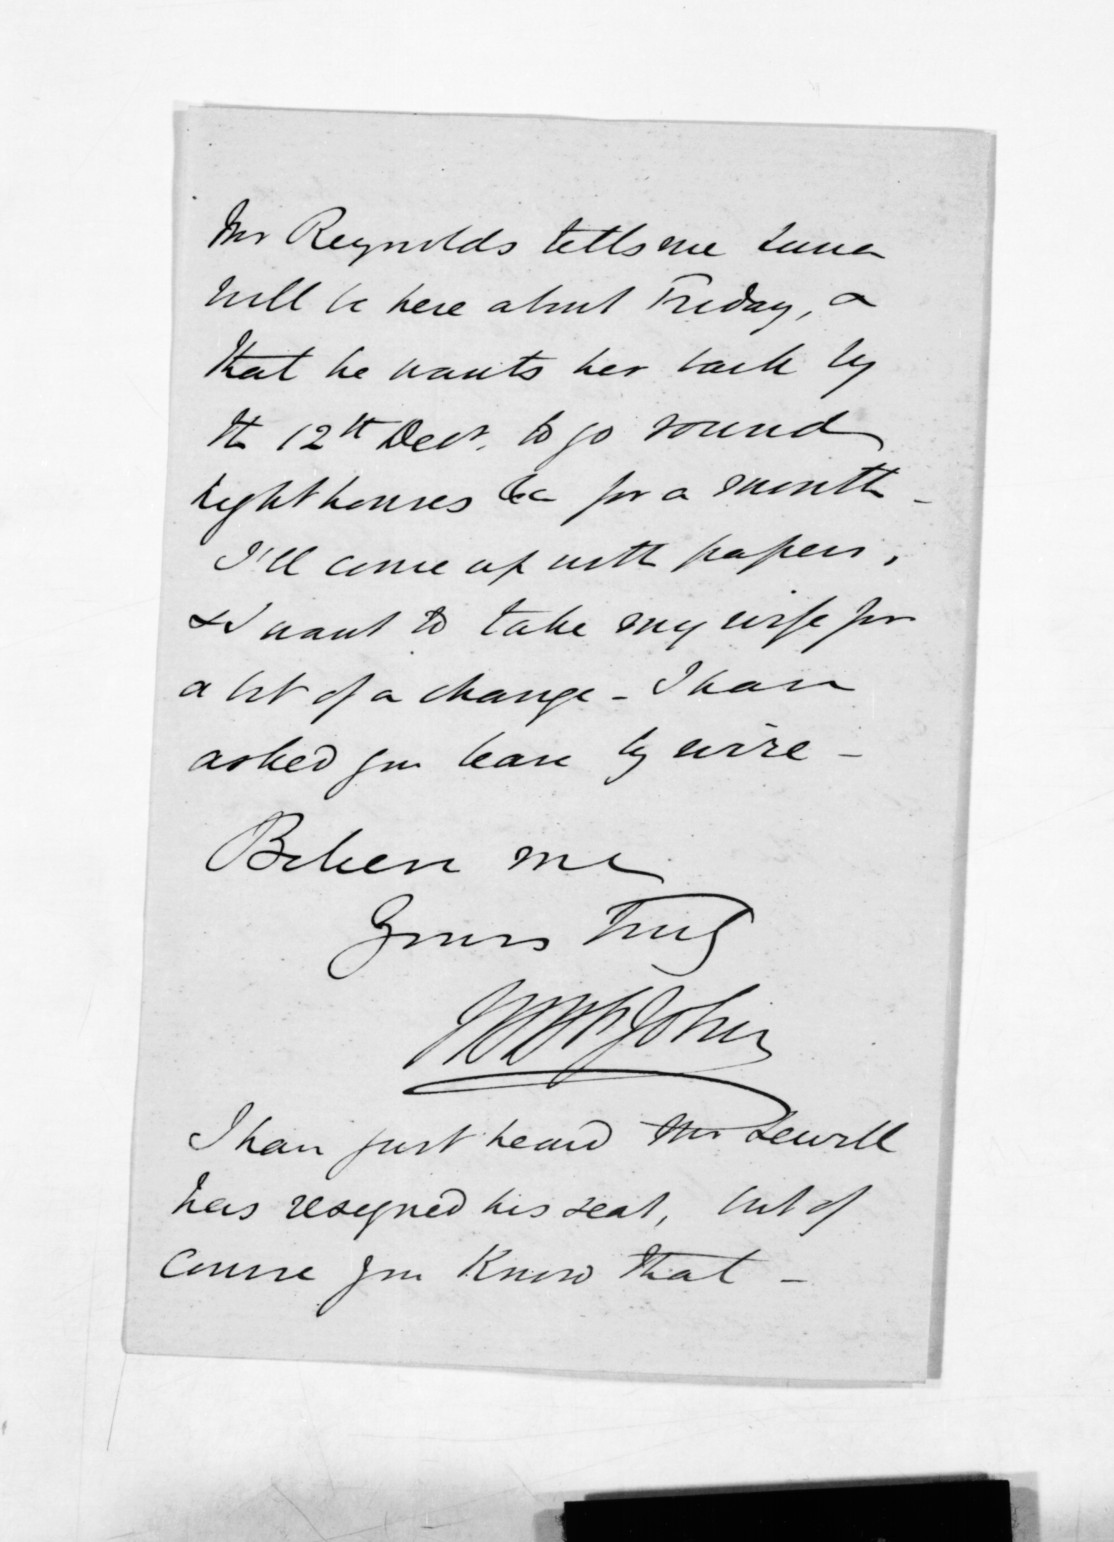 Mr Reynolds tells me Luna
will be here about Friday, &
that he wants her back by
the 12th Decr. to go round
lighthouses &c for a month -
I'll come up with papers,
& I want to take my wife for
a bit of a change - I have
asked your leave by wire -
Believe me
Yours truly
I have just heard Mr Sewell
has resigned his seat, but of
course you know that -